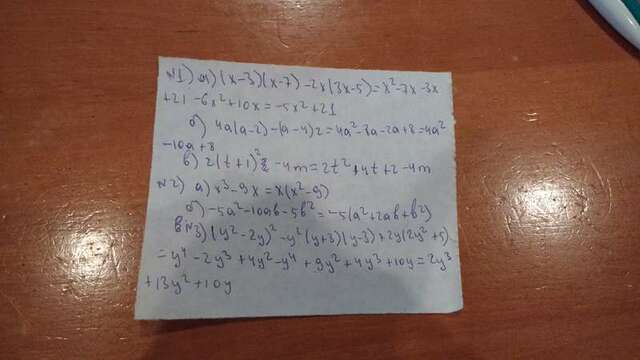 №1) а) (x-3)(x-7)-2x(3x-5)=x²-7x-3x
+21-6x²+10x=-5x²+21
б) 4a(a-2)-(a-4)2=4a²-8a-2a+8=4a²
-10a+8
в) 2(t+1)² -4m=2t²+4t+2-4m
№2) а) x³-9x=x(x²-9)
б) -5a²-10ab-5b²=-5(a²+2ab+b²)
№3) (y²-2y)²-y²(y+3)(y-3)+2y(2y²+5)
=y⁴-2y³+4y²-y⁴+9y²+4y³+10y=2y³
+13y²+10y